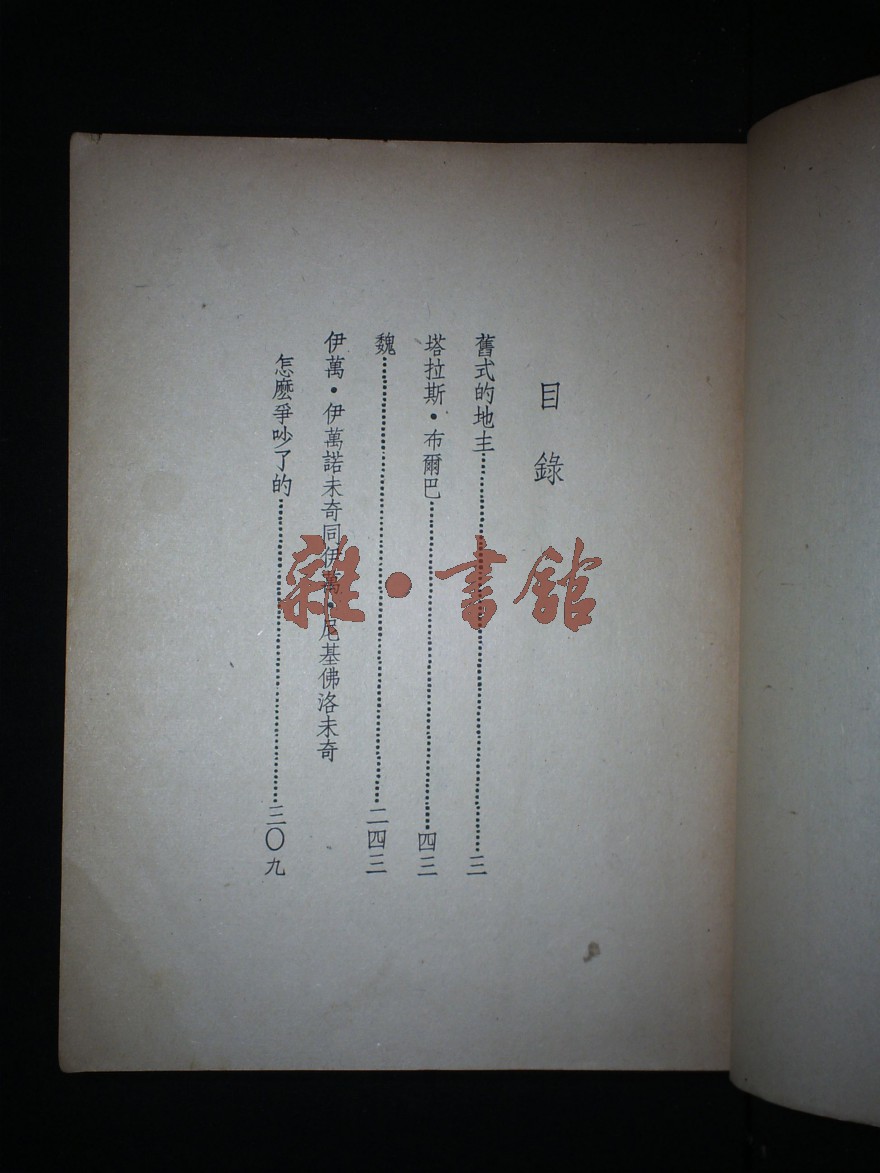 目錄
舊式的地主……三
塔拉斯·布爾巴……四三
魏……二四三
伊萬·伊萬諾未奇同伊萬·尼基佛洛未奇
怎麼爭吵了的……三〇九
雜·書館